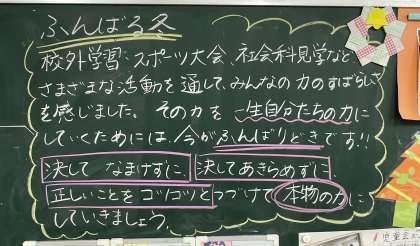 ふんばる冬
校外学習、スポーツ大会、社会科見学など、
さまざまな活動を通して、みんなの力のすばらしさ
を感じました。その力を一生自分たちの力に
していくためには、今がふんばりどきです!!
決して なまけずに、決してあきらめずに、
正しいことをコツコツとつづけて本物の力に
していきましょう。
児童会